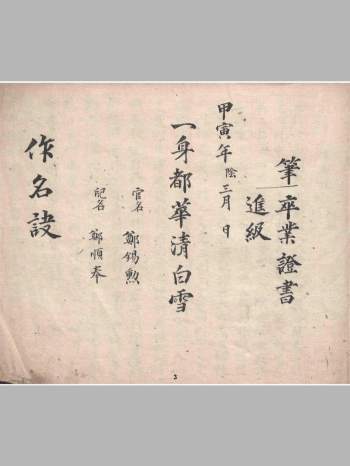 筆卒業證書
進級
甲寅年陰三月 日
一身都華清白雪
官名 鄭錫勲
配名 鄭順奉
作名訣